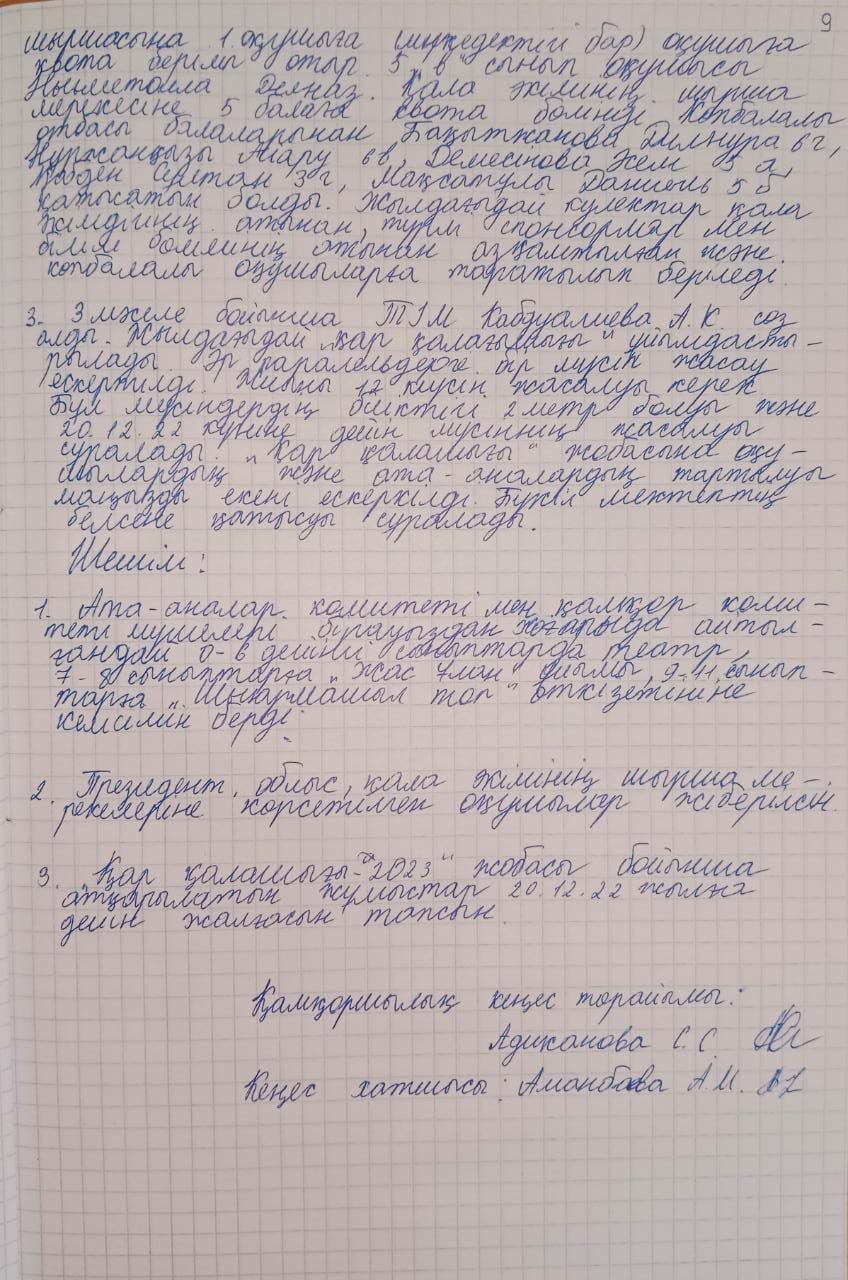 9
шыршасына 1 оқушыға (мүгедектігі бар) оқушыға
квота берілді отыр. 5 "в" сынып оқушысы
Ділназ. Қала әкімінің шырша
мерекесіне 5 балаға квота бөлінді. Көпбалалы
отбасы балаларынан Бақытжанова Дильнура 6 г,
Нұржанқызы Аяру 6в, Демесінова Әсем 5 а,
Султан 3 г, Мақсатұлы Даниель 5 б
қатысатын болды. Жылдағыдай кулектар қала
әкімдігінің атынан, түрлі спонсорлар мен
білім бөлімінің атынан аз қамтылған және
көпбалалы оқушыларға таратылып беріледі.
3. 3 мәселе бойынша ТІМ Кабдуалиева А.К. сөз
алды. Жылдағыдай „Қар қалашығы" ұйымдасты-
рылады. Әр параллельдерге бір мүсін жасау
ескертілді. Жиыны 12 мүсін жасалуы керек
Бұл мүсіндердің биіктігі 2 метр болуы және
20.12.22 күніне дейін мүсіннің жасалуы
сұралады. „Қар қалашығы" жобасына оқу-
шылардың және ата-аналардың тартылуы
маңызды екені ескеркілді. Бүкіл мектептің
белсене қатысуы сұралады.
Шешім:
1. Ата-аналар комитеті мен қамқор коми-
теті мүшелері бірауыздан жоғарыда айтыл-
ғандай 0-6 дейінгі сыныптарда театр,
7-8 сыныптарға „Жас ұлан" ұйымы, 9-11 сынып-
тарға „Шығармашыл топ" өткізетініне
келісімін берді.
2. Президент, облыс, қала әкімінің шырша ме-
рекелеріне көрсетілген оқушылар жіберілсін.
3. „Қар қалашығы-2023" жобасы бойынша
атқарылатын жұмыстар 20.12.22 жылға
дейін жалғасын тапсын.
Қамқоршылық кеңес төрайымы:
Адиканова С.С.
Кеңес хатшысы: Аманбаева А.М.